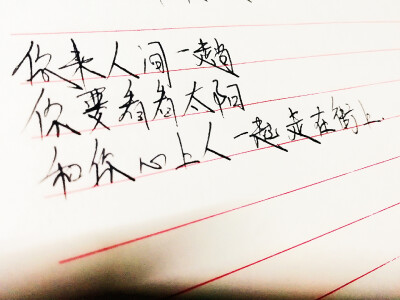 你来人间一趟
你要看看太阳
和你心上人一起走在街上.